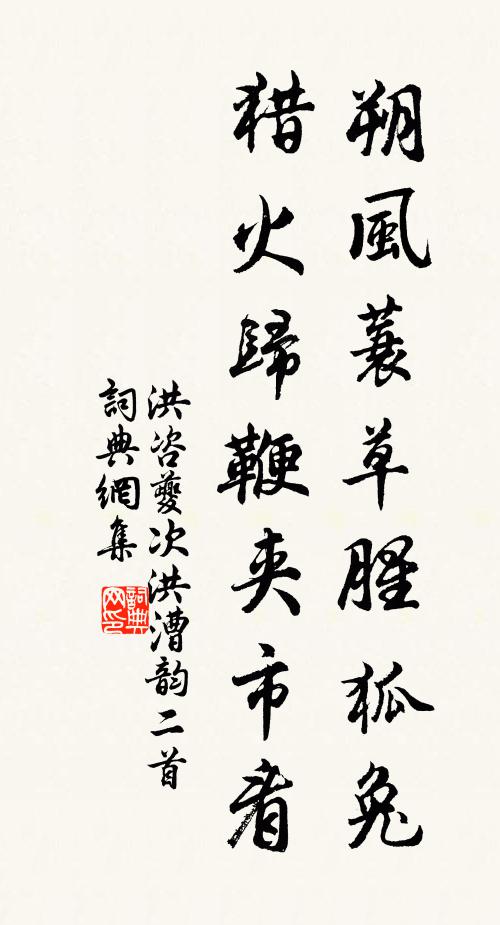 朔風蓑草腥狐兔
猎火歸鞭夾市看
洪咨夔次洪漕韵二首
詞典網集
詞典
网印